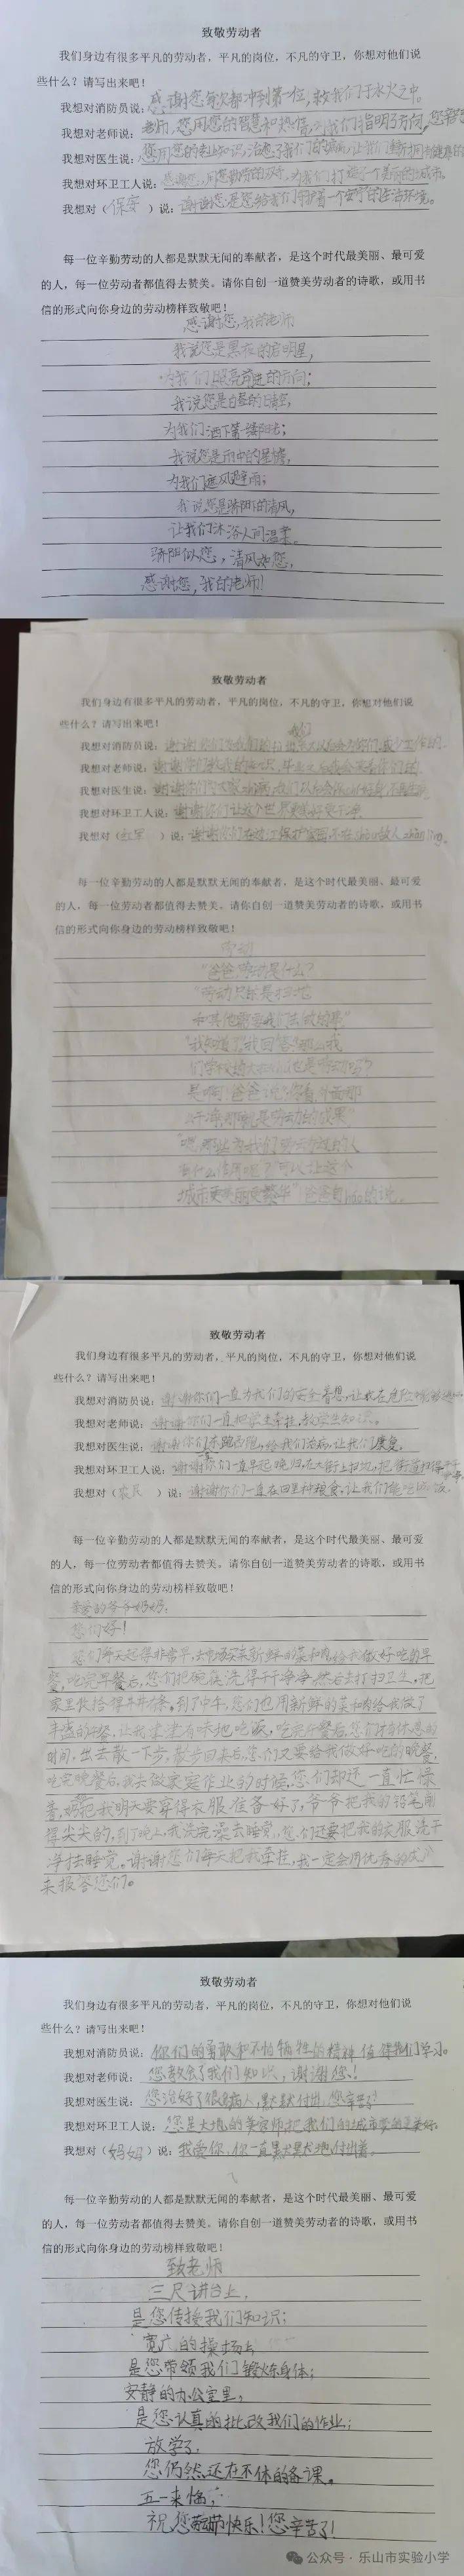 致敬劳动者
我们身边有很多平凡的劳动者，平凡的岗位，不凡的守卫，你想对他们说
些什么？请写出来吧！
我想对消防员说：感谢您每次都冲到第一位，救我们于水火之中。
我想对老师说：老师，您用您的智慧和热情，为我们指明了方向，您辛苦
我想对医生说：您用您的专业知识，治愈了我们的疾病，让我们
我想对环卫工人说：感谢您，用您勤劳的双手，为我们打扫了一个美丽的城市。
我想对（保安）说：谢谢您，是您给我们守护着一个安宁的生活环境。
每一位辛勤劳动的人都是默默无闻的奉献者，是这个时代最美丽、最可爱
的人，每一位劳动者都值得去赞美。请你自创一道赞美劳动者的诗歌，或用书
信的形式向你身边的劳动榜样致敬吧！
感谢您，我的老师
我说您是黑夜的启明星，
为我们照亮前进的方向；
我说您是白昼的晴空，
为我们洒下第一缕阳光；
我说您是雨中的屋檐，
为我们遮风避雨；
我说您是骄阳下的清风，
让我们沐浴人间温柔。
骄阳似您，清风如您，
感谢您，我的老师！
致敬劳动者
我们身边有很多平凡的劳动者，平凡的岗位，不凡的守卫，你想对他们说
些什么？请写出来吧！
我想对消防员说：谢谢你们
我想对老师说：谢谢你们教我的
我想对医生说：谢谢你们
我想对环卫工人说：谢谢你们让这个世界变得更干净
我想对（红军）说：谢谢你们
每一位辛勤劳动的人都是默默无闻的奉献者，是这个时代最美丽、最可爱
的人，每一位劳动者都值得去赞美。请你自创一道赞美劳动者的诗歌，或用书
信的形式向你身边的劳动榜样致敬吧！
劳动
“爸爸劳动是什么？
“劳动只乐是扫地
“我知道了”我回答
是啊”爸爸说“你看外面那
么干净，那就是劳动的成果”
可以让这个
城市更美丽更繁华”爸爸自hao的说。
致敬劳动者
我们身边有很多平凡的劳动者，平凡的岗位，不凡的守卫，你想对他们说
些什么？请写出来吧！
我想对消防员说：谢谢你们一直为我们的安全着想，让我在危险
我想对老师说：谢谢你们一直把学生牵挂，教学生知识。
我想对医生说：谢谢你们东跑西跑，给我们治病，让我们康复。
我想对环卫工人说：谢谢你们一直早起晚归，在大街上扫地，把街道扫得干干
我想对（农民）说：谢谢你们一直在田里种粮食，让我们能吃饱饭。
每一位辛勤劳动的人都是默默无闻的奉献者，是这个时代最美丽、最可爱
的人，每一位劳动者都值得去赞美。请你自创一道赞美劳动者的诗歌，或用书
信的形式向你身边的劳动榜样致敬吧！
亲爱的爷爷奶奶：
您们好！
您们每天起得非常早，去市场买来新鲜的菜和肉给我做好吃的早
餐，吃完早餐后，您们把碗筷洗得干干净净然后去打扫卫生，把
家里收拾得井井有条。到了中午，您们也用新鲜的菜和肉给我做了
丰盛的午餐，让我津津有味地吃饭，吃完午餐后，您们才有休息的
时间，出去散一下步，散步回来后，您们又要给我做好吃的晚餐，
吃完晚餐后，我去做家庭作业的时候，您们却还一直忙碌
着，奶奶把我明天要穿得衣服准备好了，爷爷把我的铅笔削
得尖尖的，到了晚上，我洗完澡去睡觉，您们还要把我的衣服洗干
净才去睡觉。谢谢您们每天把我牵挂，我一定会用优秀的
来报答您们。
致敬劳动者
我们身边有很多平凡的劳动者，平凡的岗位，不凡的守卫，你想对他们说
些什么？请写出来吧！
我想对消防员说：你们的勇敢和不怕牺牲的精神值得我们学习。
我想对老师说：您教会了我们知识，谢谢您！
我想对医生说：您治好了很多病人，默默付出，您辛苦了！
我想对环卫工人说：您是大地的美容师，把我们的城市变的更美好。
我想对（妈妈）说：我爱你，你一直默默地付出着。
每一位辛勤劳动的人都是默默无闻的奉献者，是这个时代最美丽、最可爱
的人，每一位劳动者都值得去赞美。请你自创一道赞美劳动者的诗歌，或用书
信的形式向你身边的劳动榜样致敬吧！
致老师
三尺讲台上，
是您传授我们知识；
宽广的操场上
是您带领我们锻炼身体；
安静的办公室里，
是您认真的批改我们的作业；
放学了，
您仍然还在不休的备课。
五一来临，
祝您劳动节快乐！您辛苦了！
公众号·乐山市实验小学